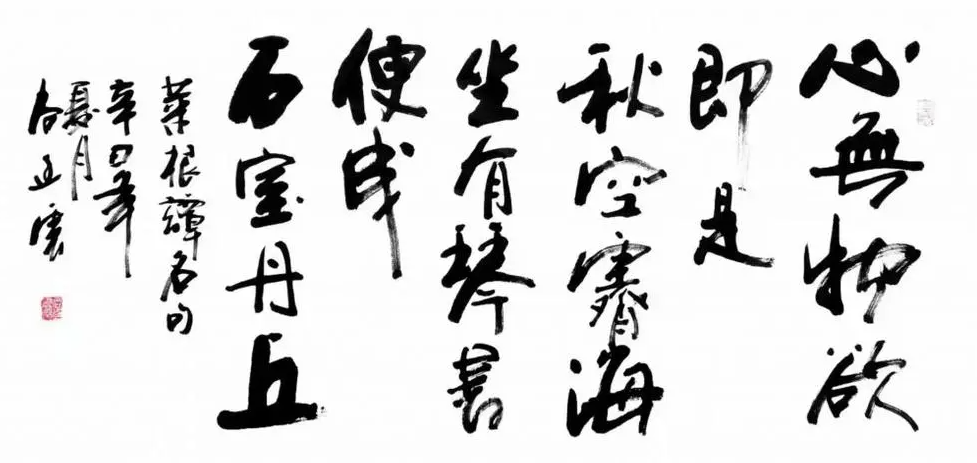 心無物欲
即是
秋空霽海
坐有琴書
便成
石室丹丘
菜根譚名句
辛丑年
夏月
谷正雲